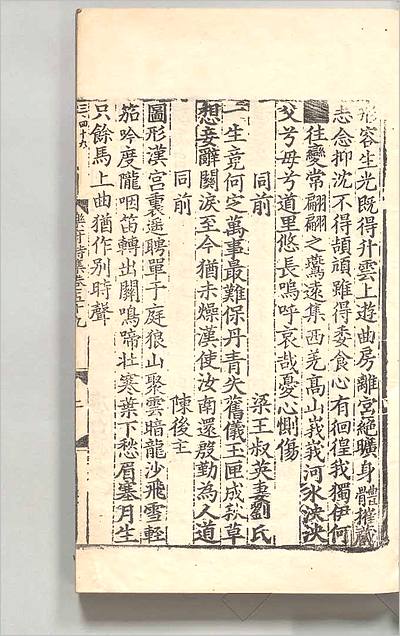 形容生光既得升雲上遊曲房離宮絕曠身體摧藏
志念抑沈不得頡頏雖得委食心有徊徨我獨伊何
往變常翩翩之鷰遠集西羌髙山峩峩河水泱泱
父兮母兮道里悠長嗚呼哀哉憂心惻傷
同前 梁王叔英妻劉氏
一生竟何定萬事最難保丹青失舊儀玉匣成秋草
想妾辭關淚至今猶未燥漢使汝南還殷勤為人道
同前 陳後主
圖形漢宮裏遥聘單于庭狼山聚雲暗龍沙飛雪輕
笳吟度隴咽笛轉出關鳴啼妝寒葉下愁眉塞月生
只餘馬上曲猶作别時聲
樂府詩集卷五十九